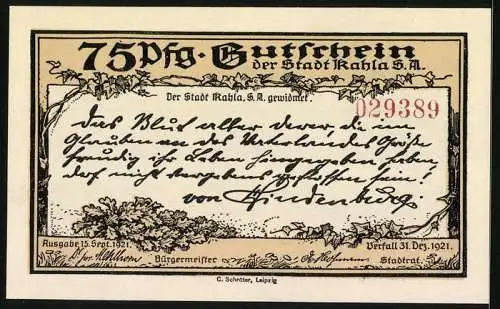 75 Pfg. Gutschein
der Stadt Kahla S.A.
Der Stadt Kahla, S.A. gewidmet.
029389
Das Blut aller derer, die im
Glauben an des Vaterlandes Größe
freudig ihr Leben hingegeben haben,
darf nicht vergebens geflossen sein!
von Hindenburg.
Ausgabe 15. Sept. 1921.
Verfall 31. Dez. 1921.
Bürgermeister
Stadtrat.
C. Schröter, Leipzig